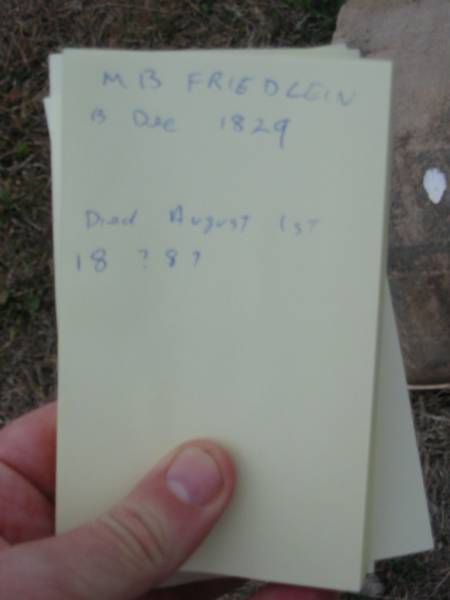 M B FRIEDLEIN
B Dec 1829
Died August 1st
18 ? 8 ?